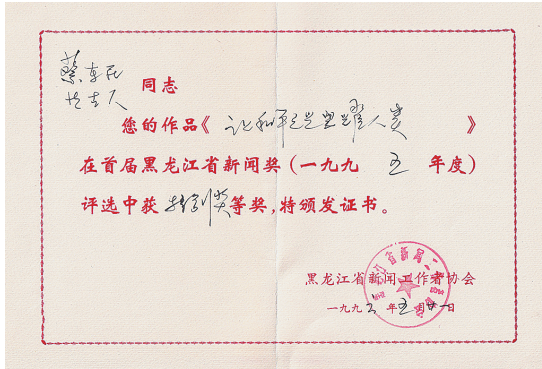 同志
您的作品《让和平之光照耀人类》
在首届黑龙江省新闻奖(一九九五年度)
评选中获特别奖等奖,特颁发证书。
黑龙江省新闻工作者协会
一九九六年五月廿一日